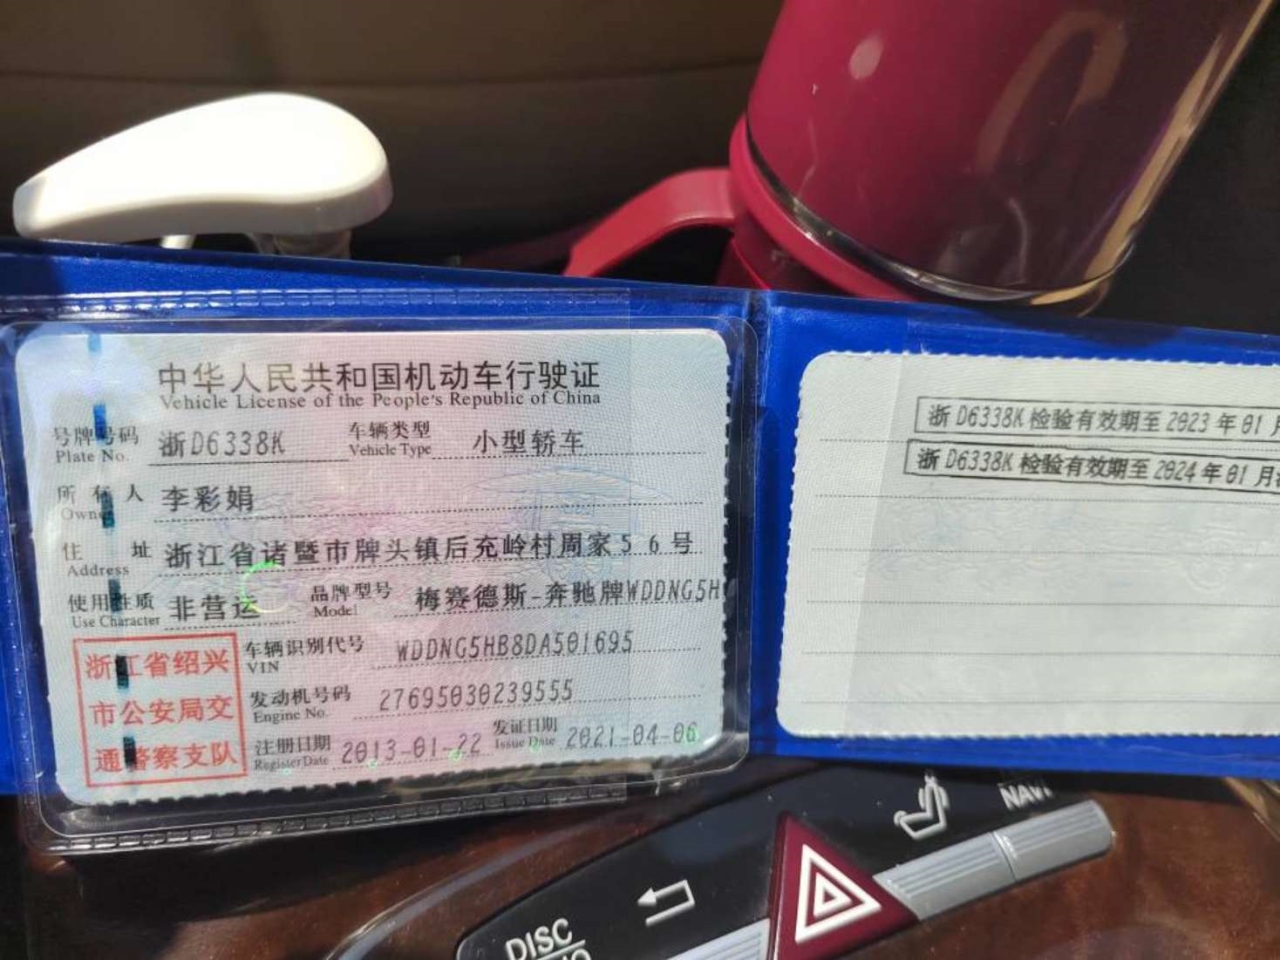 中华人民共和国机动车行驶证
Vehicle License of the People's Republic of China
号牌号码 浙D6338K 车辆类型 小型轿车
Plate No. Vehicle Type
所有人 李彩娟
Owner
住址 浙江省诸暨市牌头镇后充岭村周家56号
Address
使用性质 非营运 品牌型号 梅赛德斯-奔驰牌WDDNG5H
Use Character Model
浙江省绍兴
市公安局交
通警察支队
车辆识别代号 WDDNG5HB8DA501695
VIN
发动机号码 27695030239555
Engine No.
注册日期 2013-01-22 发证日期 2021-04-06
Register Date Issue Date
浙D6338K检验有效期至2023年01月
浙D6338K检验有效期至2024年01月
NAVI
DISC